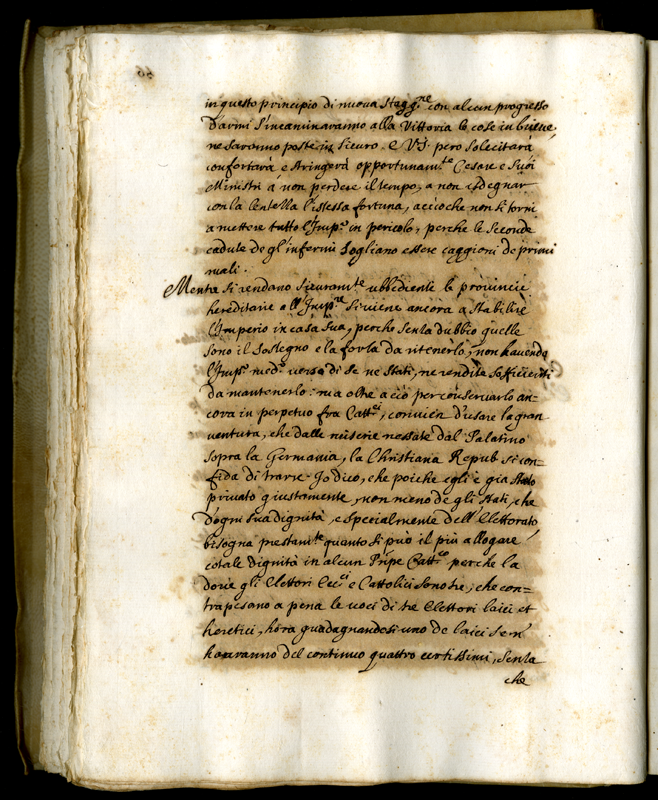 in questo principio di nuova stagg.ne con alcun progresso
d'armi s'incaminaranno alla Vittoria le cose in buene
ne saranno poste in sicuro. e V.S. però solecitarà
confortarà e stringerà opportunam.te Cesare e suoi
Ministri à non perdere il tempo, a non isdegnar
con la lentezza l'istessa fortuna, accioche non si torni
a mettere tutto l'Imp.o in pericolo, perche le seconde
cadute de gl'infermi sogliano essere caggioni de primi
mali.
Mentre si rendano sicuram.te ubbediente le provincie
hereditarie all'Imp.re si viene ancora a stabilire
l'Imperio in casa sua, perche senza dubbio quelle
sono il sostegno e la forza da ritenerlo, non havendo
l'Imp.o med.o verso di se ne stati, ne rendite sofficienti
da mantenerlo: ma oltre a ciò per conservarlo an-
cora in perpetuo fra Catt.ci, convien d'usare la gran
ventura, che dalle miserie nessate dal Palatino
sopra la Germania, la Christiana Repub. si con-
fida di trarre. Io dico, che poiche egli è gia stato
privato giustamente, non meno de gli stati, che
d'ogni sua dignità, e specialmente dell'Elettorato
bisogna prestam.te quanto si può il più allogare
cotale dignità in alcun Prñpe Catt.co perche la
dove gli Elettori Ecc.ci e Cattolici sono tre, che con-
trapesano a pena le voci di tre Elettori laici et
heretici, hora guadagnandosi uno de laici se n'
haveranno del continuo quattro certissimi, senza
che